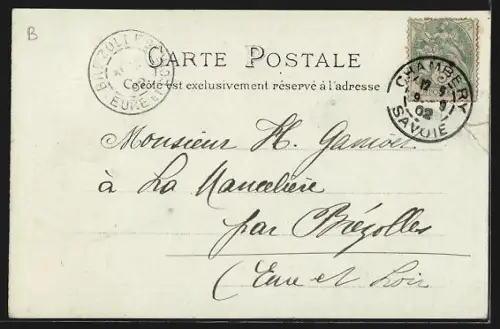 B
CARTE POSTALE
Ce côté est exclusivement réservé à l'adresse
BREZOLLES
EURE ET LOIR
CHAMBERY
12 9
9 - 9
02
SAVOIE
Monsieur H.
à La Mancelière
par Brézolles
(Eure et Loir